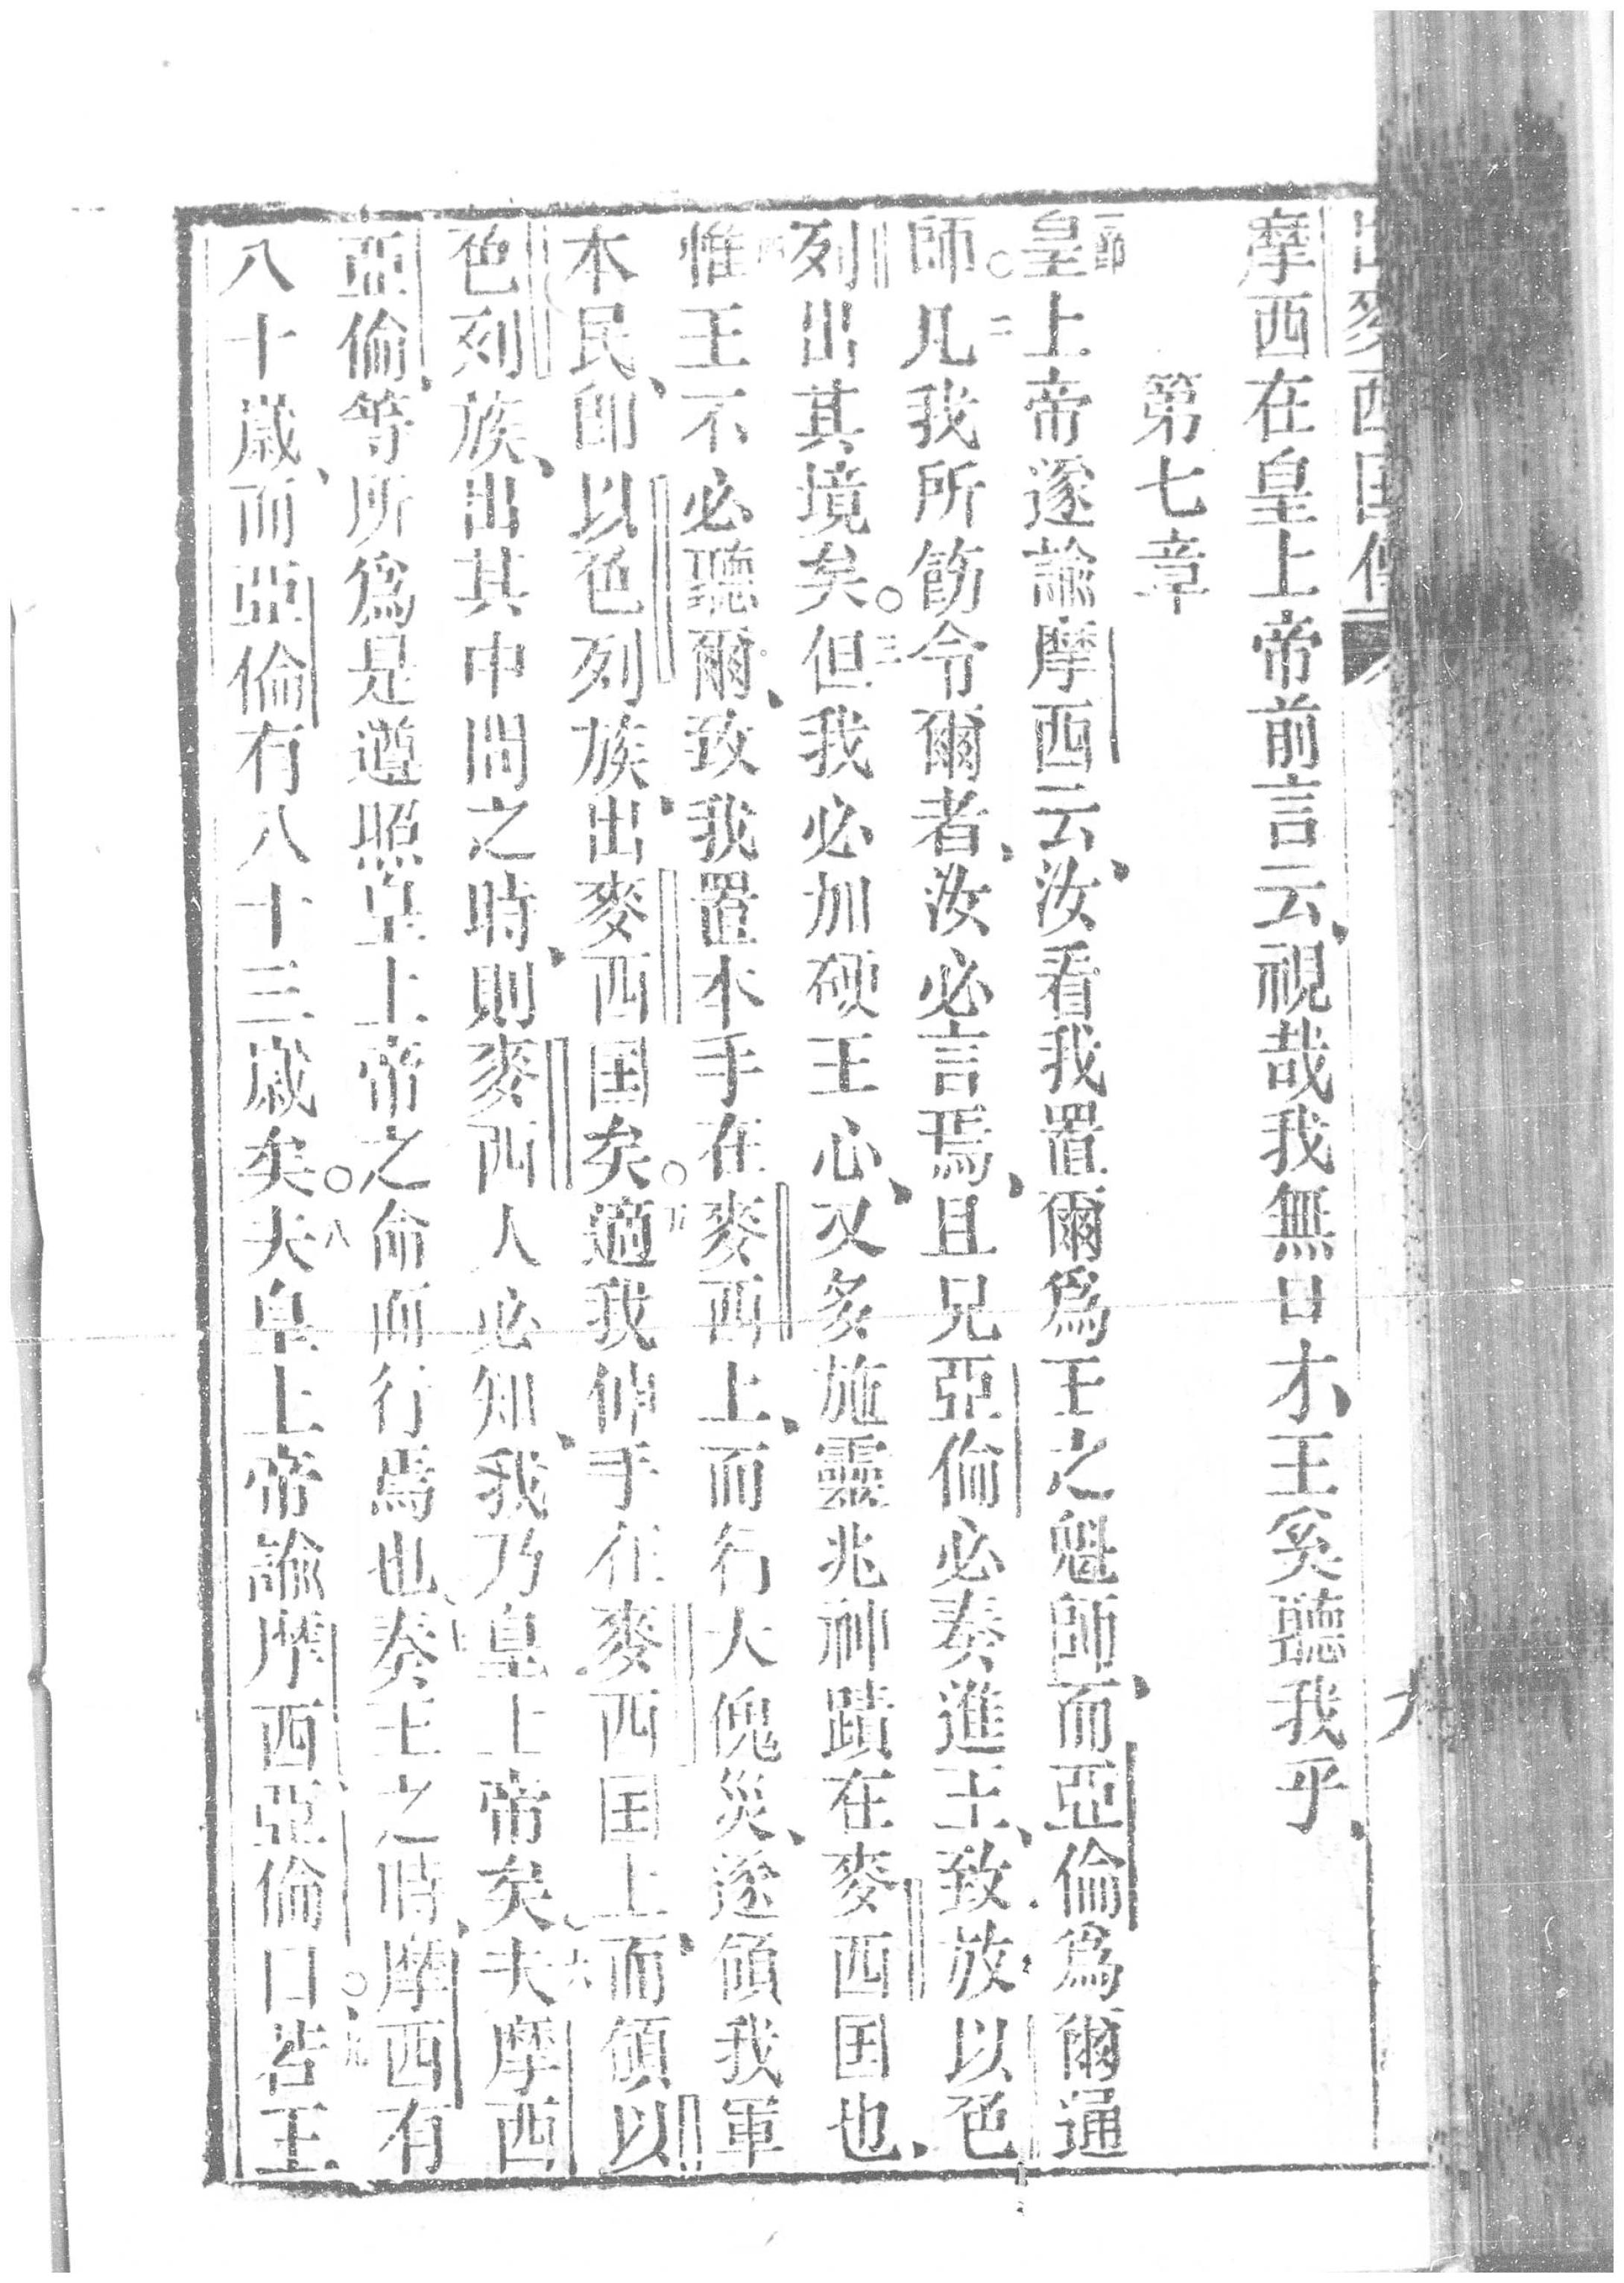 出麥西国傳
摩西在皇上帝前言云、視哉我無口才、王奚聽我乎、
第七章
一節皇上帝遂諭摩西云、汝看我置爾爲王之魁師、而亞倫爲爾通
師〇二凡我所飭令爾者、汝必言焉、且兄亞倫必奏進王、致放以色
列出其境矣〇三但我必加硬王心、又多施靈兆神蹟在麥西国也、
惟王不必聽爾、致我置本手在麥西上、而行大傀災、遂領我軍
本民、即以色列族、出麥西国矣〇五適我伸手在麥西国上、而領以
色列族、出其中間之時、則麥西人必知、我乃皇上帝矣、六夫摩西
亞倫、等所爲是遵照皇上帝之命而行焉也、七奏王之時、摩西有
八十歲、而亞倫有八十三歲矣〇八夫皇上帝諭摩西亞倫口〇九若王
九